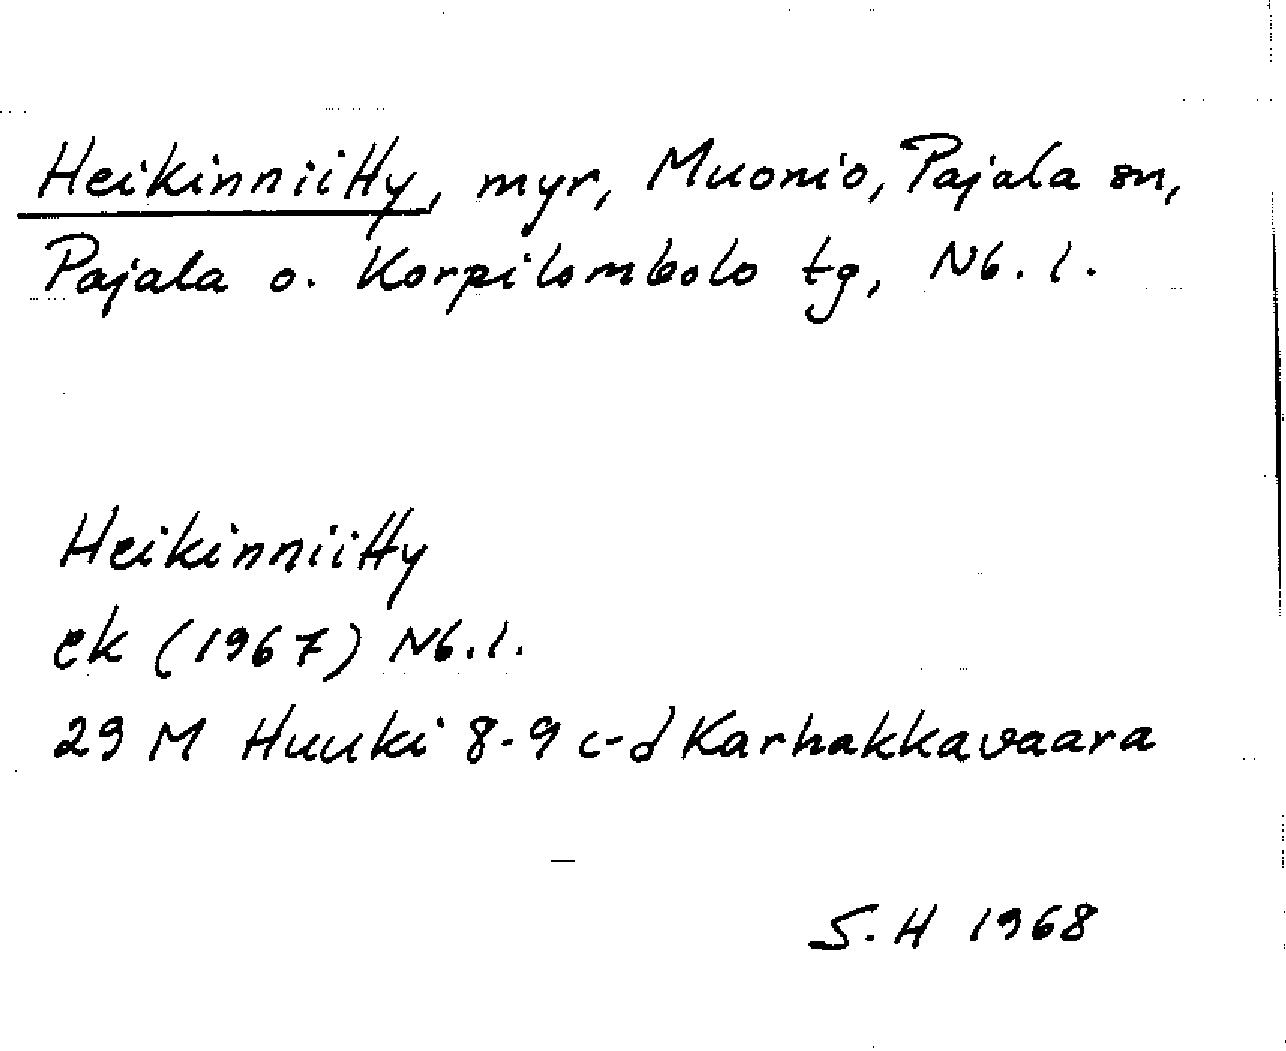 Heikinniitty, myr, Muonio, Pajala sn,
Pajala o. Korpilombolo tg, Nb. l.
Heikinniitty
ek (1967) Nb. l.
29 M Huuki 8-9 c-d Karhakkavaara
S. H 1968